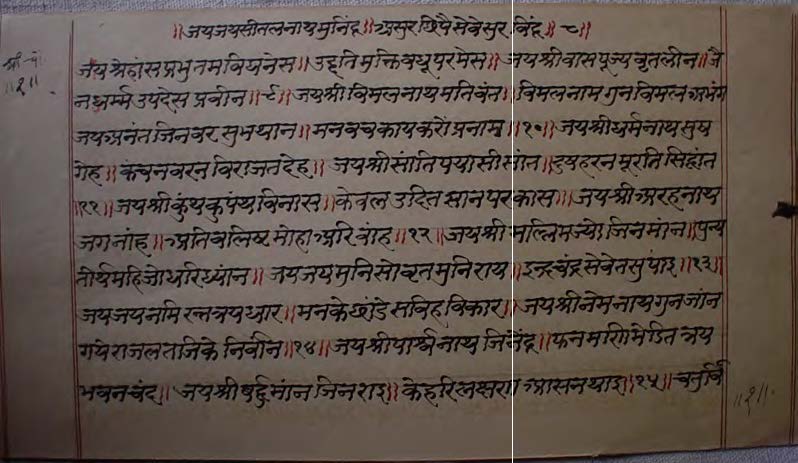 ॥जयजयसीतलनाथमुनिंद्र॥असुर षिपैसेवेसुर विंद्र॥८॥
जय श्रेहांसप्रभुतमवियनेस॥उद्दतिमुक्तिवधूपरमेस॥जयश्रीवासपूज्यवृतलीन॥जै
नधर्म्मउपदेस प्रवीन॥९॥जयश्री विमलनाथमतिवंत॥विमलनाम गुनविमल अभंग
जयअनंतजिनवर सुभथान॥मनवचकायकरौंप्रनाम॥१०॥जयश्रीधर्मनाथ सुष
गेह॥कंचनवरन विराजतदेह॥जयश्रीसांतिपयासीसांत॥दुषहरन मूरतिसिद्धांत
॥११॥जयश्री कुंथकुपंथविनास॥केवल उदित सानपरकास॥जयश्रीअरहनाथ
जगनांह॥अप्रतिबलिष्ट मोहाअरिवांह॥१२॥जयश्री मल्लिमज्यो जिनमांन॥पुन्य
तीर्थमहिजोधरिध्यांन॥जयजयमुनिसोवृतमुनिराय॥इन्द्रचंद्रसेवेतसुपांइ॥१३॥
जयजयनमिरत्नत्रयधार॥मनकेछांडेसविहविकार॥जयश्रीनेमनाथगुनजांन
गयेराजलतजिके निर्वांन॥१४॥जयश्रीपार्श्वनाथ जिनेंद्र॥फनमणिमंडित त्रय
भवनचंद॥जयश्रीवर्द्धमांनजिनराइ॥केहरिलक्षणआसनथाइ॥१५॥चतुर्वि
॥१॥
॥१॥